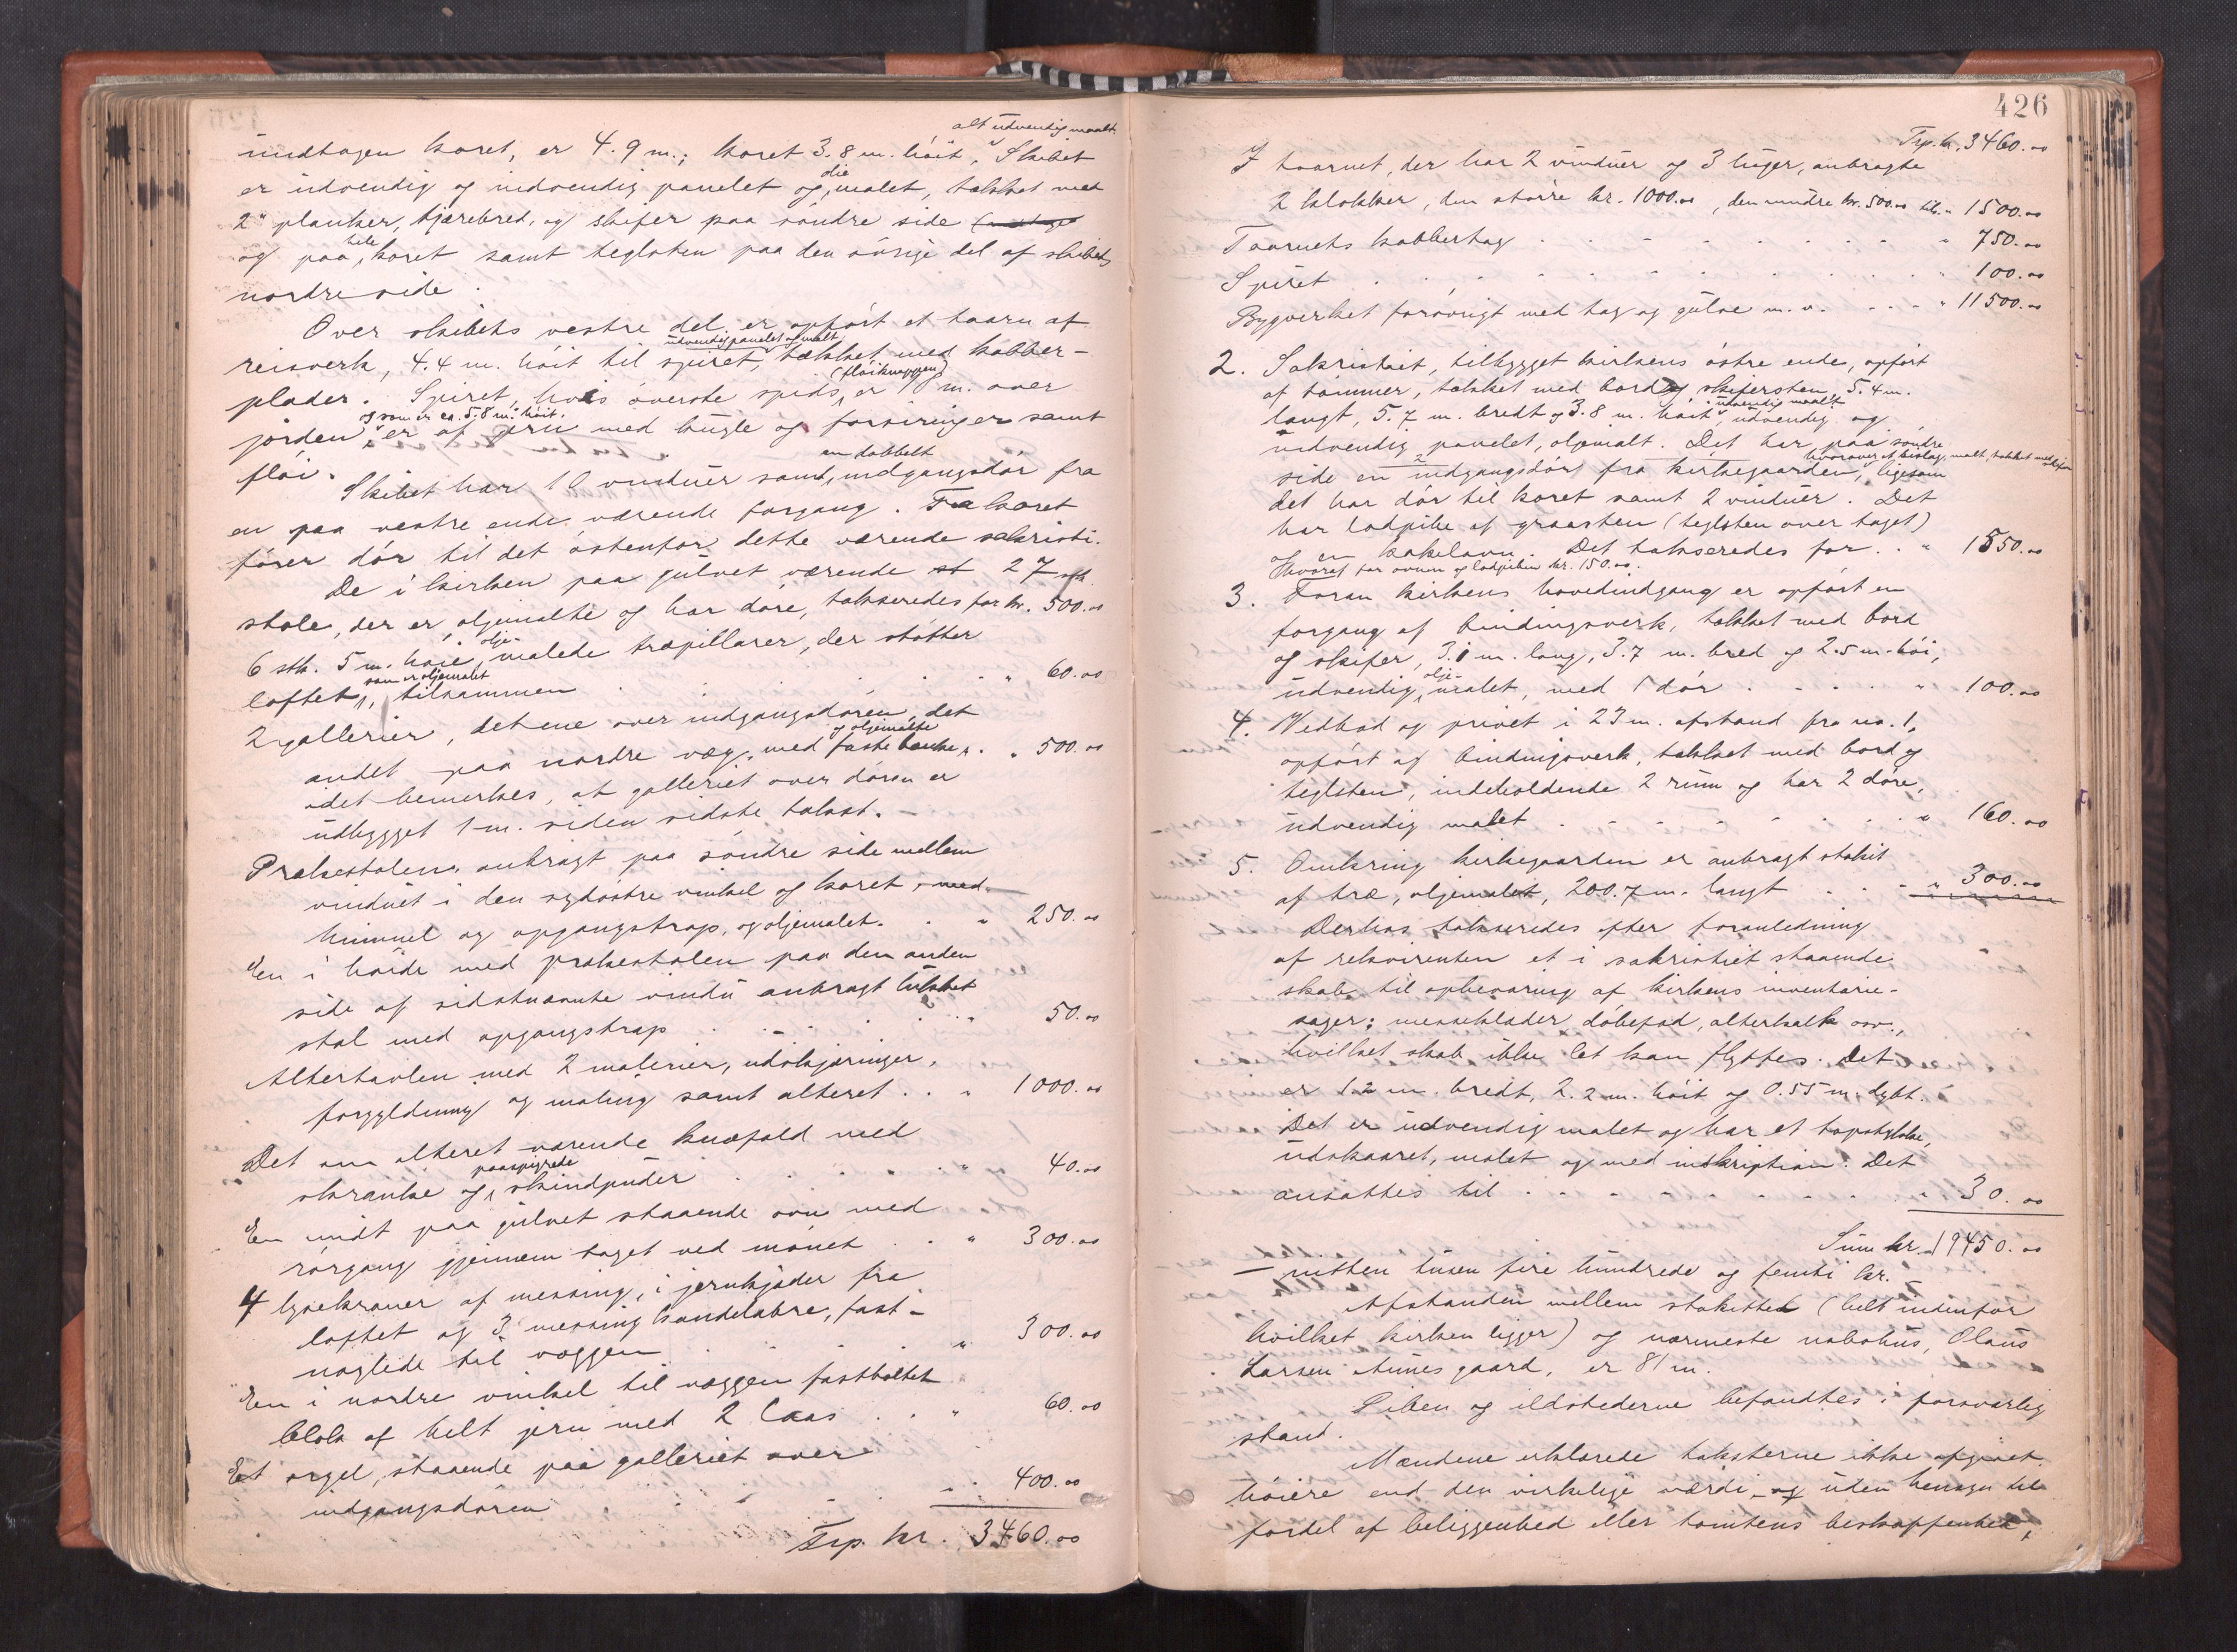 alt udvendig maalt
undtagen koret, er 4.9 m.; koret 3.8 m. høit, Skibet
er udvendig og indvendig panelet og olie malet, tækket med
2" planker, tjærebred, og skifer paa søndre side
og paa hele koret samt teglsten paa den øvrige del af skibets
nordre side.
Over skibets vestre del er opført et taarn af
reisverk, 4.4 m. høit til spiret, udvendig panelet og malt, tækket med kobber-
plader. Spiret, hvis øverste spids (fløiknappen) er 18 m. over
jorden og som er ca. 5.8 m. høit, er af jern med kugle og forsiringer samt
fløi.
Skibet har 10 vinduer samt en dobbelt indgangsdør fra
en paa vestre ende værende forgang. Fra koret
fører dør til det østenfor dette værende sakristi.
De i kirken paa gulvet værende st 27 stk.
stole, der er oljemalte og har døre, takseredes for kr. 500.00
6 stk. 5 m. høie olje-malede træpillarer, der støtter
loftet, som er oljemalet, tilsammen . . . . . " 60.00
2 gallerier, det ene over indgangsdøren, det
andet paa nordre væg, med faste bænker og oljemalte . " 500.00
idet bemerkes, at galleriet over døren er
udbygget 1 m. siden sidste takst. -
Prækestolen, anbragt paa søndre side mellem
vinduet i den sydøstre vinkel og koret, med
himmel og opgangstrap, og oljemalet. . . " 250.00
En i høide med prækestolen paa den anden
side af sidstnævnte vindu anbragt lukket
stol med opgangstrap . . . . . . " 50.00
Altertavlen med 2 malerier, udskjæringer,
forgyldning og maling samt alteret . . " 1000.00
Det om alteret værende knæfald med
skranke og paaspigrede skindputer . . . . " 40.00
En midt paa gulvet staaende ovn med
rørgang gjennem taget ved mønet . . " 300.00
4 lysekroner af messing, i jernkjæder fra
loftet og 3 messing kandelabre, fast-
naglede til væggen . . . . . " 300.00
En i nordre vinkel til væggen fastboltet
blok af helt jern med 2 laas . . " 60.00
Et orgel, staaende paa galleriet over
indgangsdøren . . . . . " 400.00
Trp. kr. 3460.00
426
Trp. kr. 3460.00
I taarnet, der har 2 vinduer og 3 luger, anbragte
2 klokker, den større kr. 1000.00, den mindre kr. 500.00 tils. " 1500.00
Taarnets kobbertag . . . . . . . " 750.00
Spiret . . . . . . . . . " 100.00
Bygverket forøvrigt med tag og gulve m.v. . . . " 11500.00
2. Sakristiet, tilbygget kirkens østre ende, opført
af tømmer, tækket med bord og skifersten, 5.4 m.
langt, 5.7 m. bredt og 3.8 m. høit, udvendig maalt, udvendig og
indvendig panelet, oljemalt. Det har paa søndre
side en indgangsdør fra kirkegaarden, hvorover et bislag, malt, tækket med skifer, ligesom
det har dør til koret samt 2 vinduer. Det
har lodpibe af graasten (teglsten over taget)
og en kakelovn. Det takseredes for . . " 1550.00
Hvoraf for ovnen og lodpiben kr. 150.00.
3. Foran kirkens hovedindgang er opført en
forgang af bindingsverk, tækket med bord
og skifer, 3.1 m. lang, 3.7 m. bred og 2.5 m. høi,
udvendig olje-malet, med 1 dør . . . . " 100.00
4. Vedbod og privet i 23 m. afstand fra no. 1,
opført af bindingsverk, tækket med bord og
teglsten, indeholdende 2 rum og har 2 døre,
udvendig malet . . . . . . . . " 160.00
5. Omkring kirkegaarden er anbragt stakit
af træ, oljemalet, 200.7 m. langt . . . " 300.00
Derhos takseredes efter foranledning
af rekvirenten et i sakristiet staaende
skab til opbevaring af kirkens inventarie-
sager: messeklæder, døbefad, alterkalk osv.,
hvilket skab ikke let kan flyttes. Det
er 1.2 m. bredt, 2.2 m. høit og 0.55 m. dybt.
Det er udvendig malet og har et topstykke,
udskaaret, malet og med inskription. Det
ansattes til . . . . . . . . . " 30.00
Sum kr. 19450.00
- nitten tusen fire hundrede og femti kr. -
Afstanden mellem stakittet (helt indenfor
hvilket kirken ligger) og nærmeste nabohus, Olaus
Larsen Aunes gaard, er 81 m.
Piben og ildstederne befandtes i forsvarlig
stand.
Mændene erklærede taksterne ikke afgivet
høiere end den virkelige værdi og uden hensyn til
fordel af beliggenhed eller tomtens beskaffenhet,